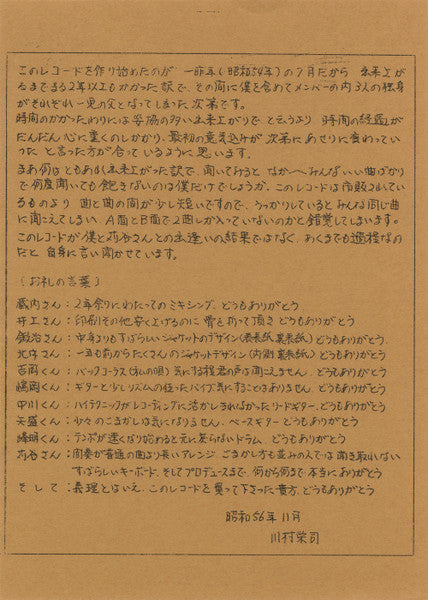 このレコードを作り始めたのが 一昨年(昭和54年)の9月だから 出来上が
るまでまる2年以上もかかった訳で、その間に僕を含めてメンバーの内3人の独身
がそれぞれ一児の父となってしまった次第です。
時間のかかったわりには妥協の多い出来上がりで と云うより 時間の経過が
だんだん心に重くのしかかり、最初の意気込みが 次第にあせりに変わってい
った と言った方が合っているように思います。
まあ何はともあれ出来上がった訳で、聞いてみると なかなかみんないい曲ばかり
で何度聞いても飽きないのは僕だけでしょうか。このレコードは市販されてい
るものより 曲と曲の間が少し短いですので、うっかりしていると みんな同じ曲
に聞こえてしまい A面とB面で2曲しか入っていないのかと錯覚してしまいます。
このレコードが僕と苅谷さんとの出逢いの結果ではなく、あくまでも過程なの
だと 自身に言い聞かせています。
(お礼の言葉)
蔵内さん:2年余りにわたってのミキシング、どうもありがとう
井上さん:印刷その他安く上げるのに 骨を折って頂き どうもありがとう
鍛治さん:中身よりもすばらしいジャケットのデザイン(表表紙、裏表紙)どうもありがとう.
北岸さん:一五も前からたくさんのジャケットデザイン(内側、裏表紙)どうもありがとう
吉岡くん:バックコーラス(私の唄)気にする程君の声は聞こえません. どうもありがとう
嶋岡くん:ギターと少しリズムの狂ったバイブ、気にすることはありません. どうもありがとう
中川くん:ハイテクニックがレコーディングに活かしきれなかったリードギター. どうもありがとう
矢盛くん:少々のごまかしは気になりません. ベースギター どうもありがとう
晴明くん:テンポが速くなり始めると元に戻らないドラム. どうもありがとう
苅谷さん:間奏が普通の曲より長いアレンジ. ごまかし方も並みの人では聞き取れない
すばらしいキーボード. そしてプロデュースまで、何から何まで本当にありがとう
そして:義理とはいえ、このレコードを買って下さった貴方. どうもありがとう
昭和56年11月
川村栄司